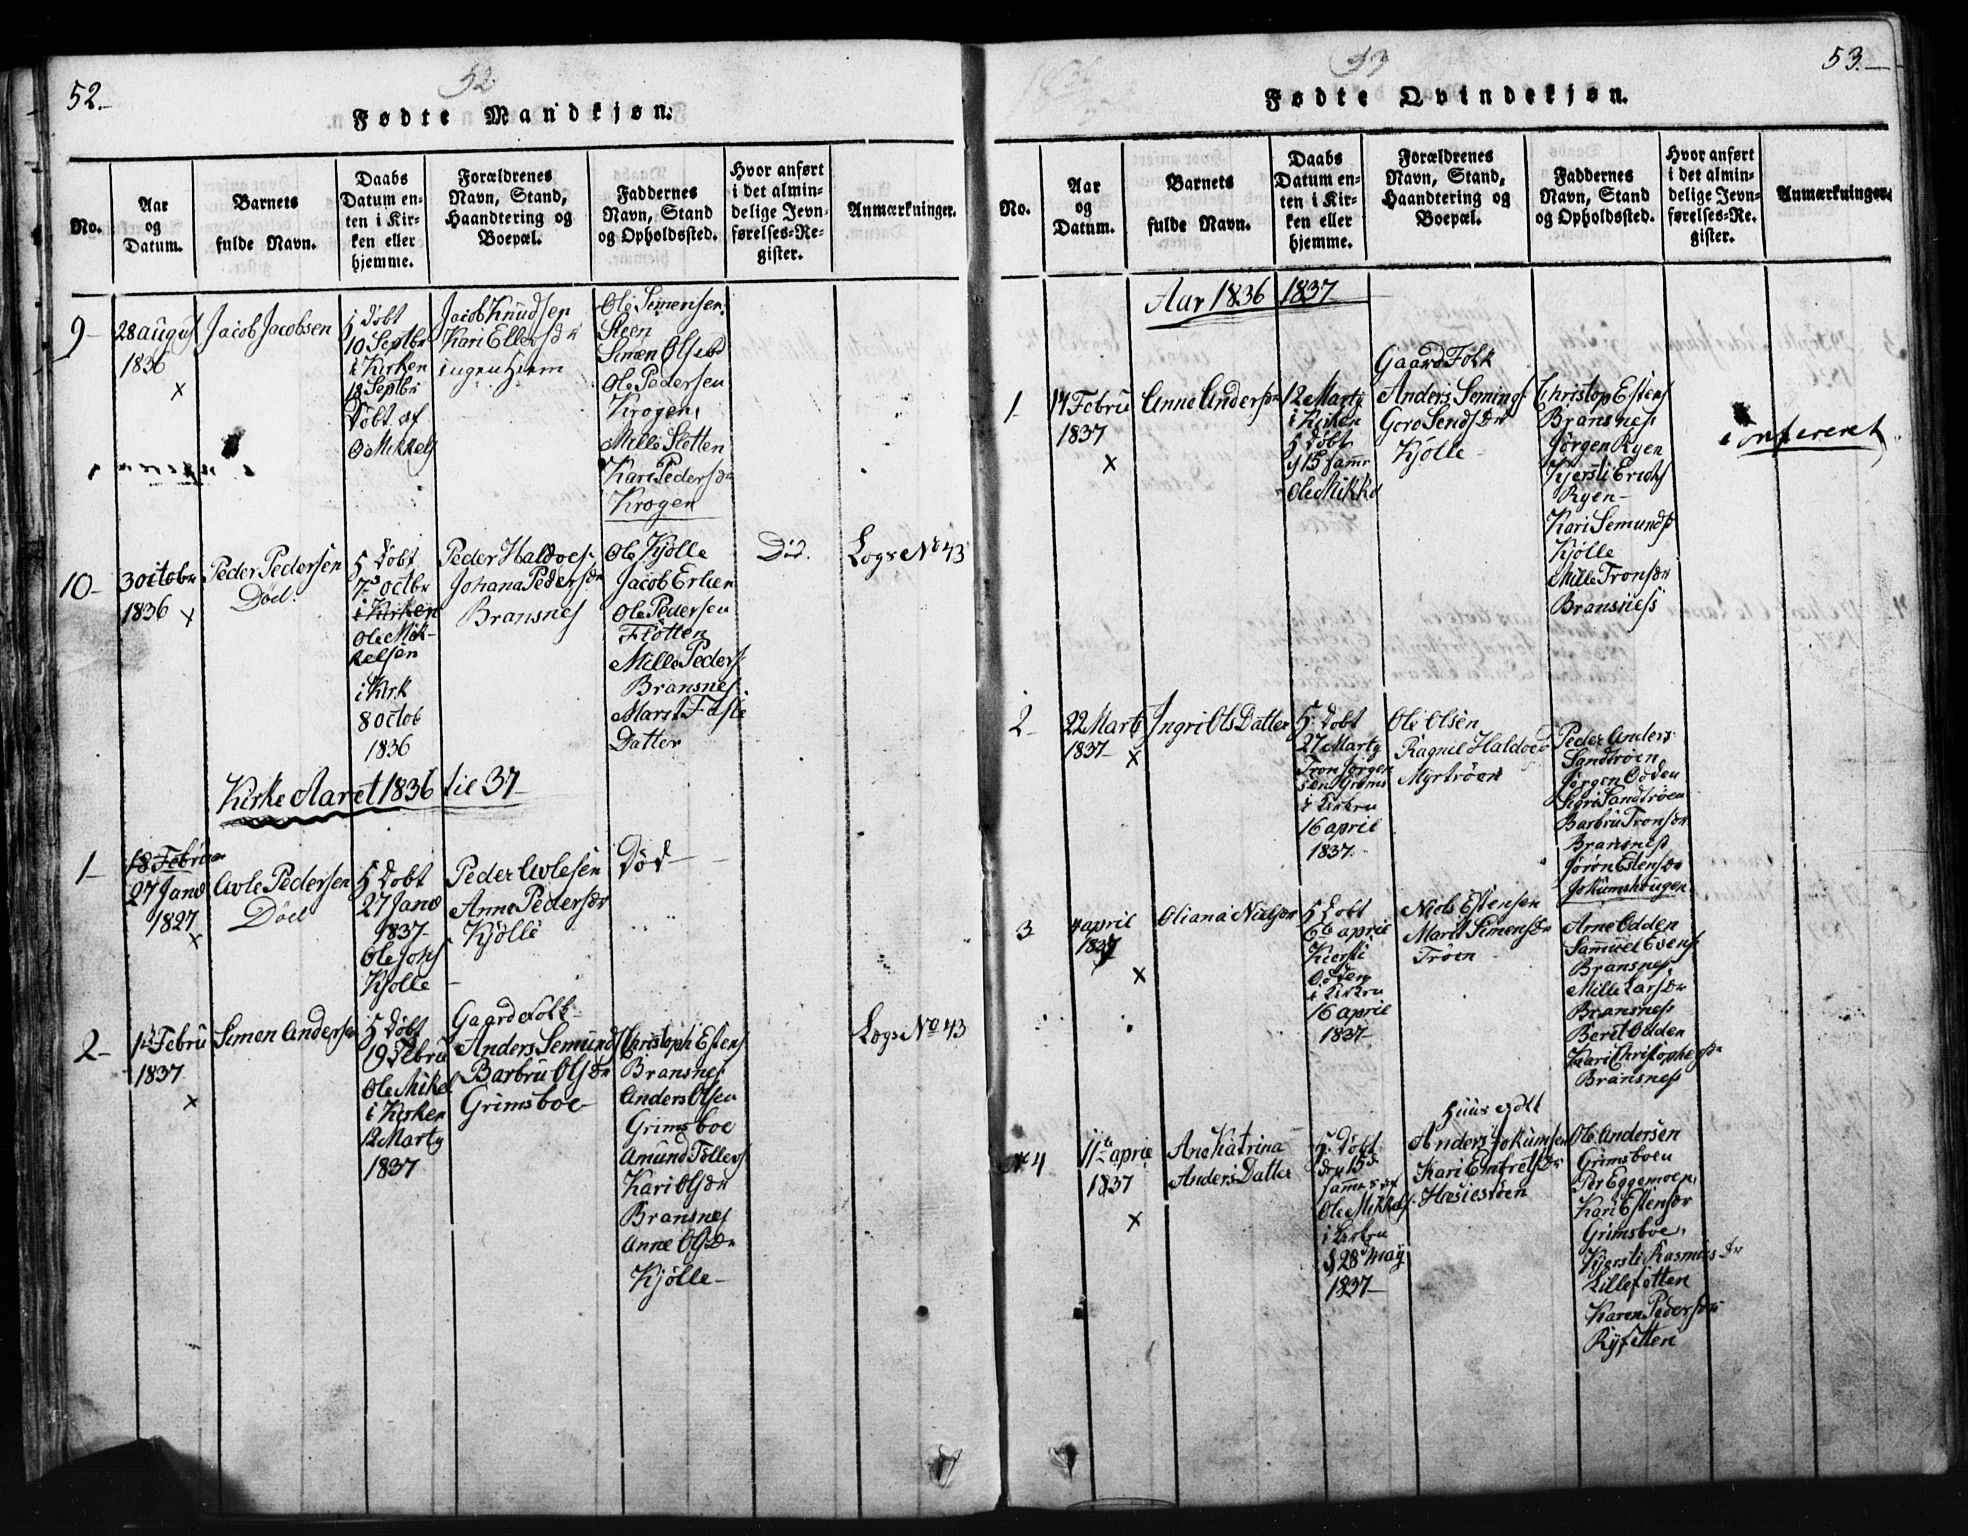 52.
52
Fødte Mandkjøn.
No.
Aar
og
Datum.
Barnets
fulde Navn.
Daabs
Datum en-
ten i Kir-
ken eller
hjemme.
Forældrenes
Navn, Stand,
Haandtering og
Boepæl.
Faddernes
Navn, Stand
og Opholdssted.
Hvor anført
i det almin-
delige Jevn-
førelses-Re-
gister.
Anmærkninger.
9
28 august
1836
x
Jacob Jacobsen
H Døbt
10 Septbr
i Kirken
18 Septbr
Døbt af
O Mikkels
Jacob Knudsen
Kari Ellevsdr
ingen Hiem
Ole Simensen
Steen
Simen Olsen
Ole Pedersen
Krogen
Mille Slotten
Kari Pedersdr
Krogen
10
3 octobr
1836 x
Peder Pedersen
Død.
H Døbt
7de octbr
i Kirken
Ole Mik-
kelsen
i Kirk
8 octob
1836
Peder Haldors
Johana Pedersdr
Bransnes
Ole Kjølle
Jacob Erlien
Ole Pedersen
Fløtten
Mille Peders
Bransnes
Marit Faste
Datter
Død.
Logs No 43
Kirke Aaret 1836 til 37
1
18 Febru
27 Janv
1827
x
Avle Pedersen
Død
H Døbt
27 Janv
1837
Ole Johs
Kjølle
Peder Avlesen
Anne Pedersdr
Kjølle
Død
2
Febru
1837
x
Simen Andersen
H Døbt
19 Febru
Ole Mikel
i Kirken
12 Marty
1837
Gaard Folk
Anders Semund
Barbru Olsdr
Grimsboe
Christoph Estens
Bransnes
Anders Olsen
Grimsboe
Amund Tollefs
Kari Olsdr
Bransnes
Anne Olsdr
Kjølle
Logs No 43
53
53.
Fødte Qvindekjøn.
No.
Aar
og
Datum.
Barnets
fulde Navn.
Daabs
Datum en-
ten i Kir-
ken eller
hjemme.
Forældrenes
Navn, Stand,
Haandtering og
Boepæl.
Faddernes
Navn, Stand
og Opholdssted.
Hvor anført
i det almin-
delige Jevn-
førelses-Re-
gister.
Anmærkninger.
Aar 1836 1837
1
14 Febru
1837
x
Anne Andersdr
12 Marty
i Kirken
H Døbt
d 15 samme
Ole Mikkel
Gaard Folk
Anders Semings
Goro Sendsdr
Kjølle
Christop Estens
Bransnes
Jørgen Ryen
Kjersti Erichs
Ryen
Kari Semunds
Kjølle
Mille Tronsdr
Bransness
confereret
2
22 Marts
1837
x
Ingri Ols Datter
H. Døbt
27 Marty
Tron Jørgen
sen Grims
i Kirken
16 april
1837.
Ole Olsen
Ragnil Haldors
Myrtrøen
Peder Anders
Sandtrøen
Jørgen Odden
Sigri Sandtrøen
Barbru Tronsdr
Bransness
Jørøn Estensdr
Jokumshougen
3
4 april
1837
x
Oliana Nielsdr
H Døbt
6te april
Kiersti
Odden
i Kirken
16 april
1837
Niels Estensen
Marit Simensdr
Trøen
Arne Odden
Sammuel Evens
Bransnes
Mille Larsdr
Bransness
Beret Odden
Kari Christophersdr
Bransness
No 4
11te april
1837
x
Ane Katrina
Anders Datter
H. Døbt
den 15de
samme af
Ole Mikkels
i Kirken
d 28 May
1837
Huus Folk
Anders Jokumsen
Kari Embretsdr
Hæsiestøen
Ole Andersen
Grimsboen
Per Eggemoen
Kari Estensdr
Grimsboe
Kjersti Rasmusdr
Lillefotten
Karen Pedersdr
Ryfetten